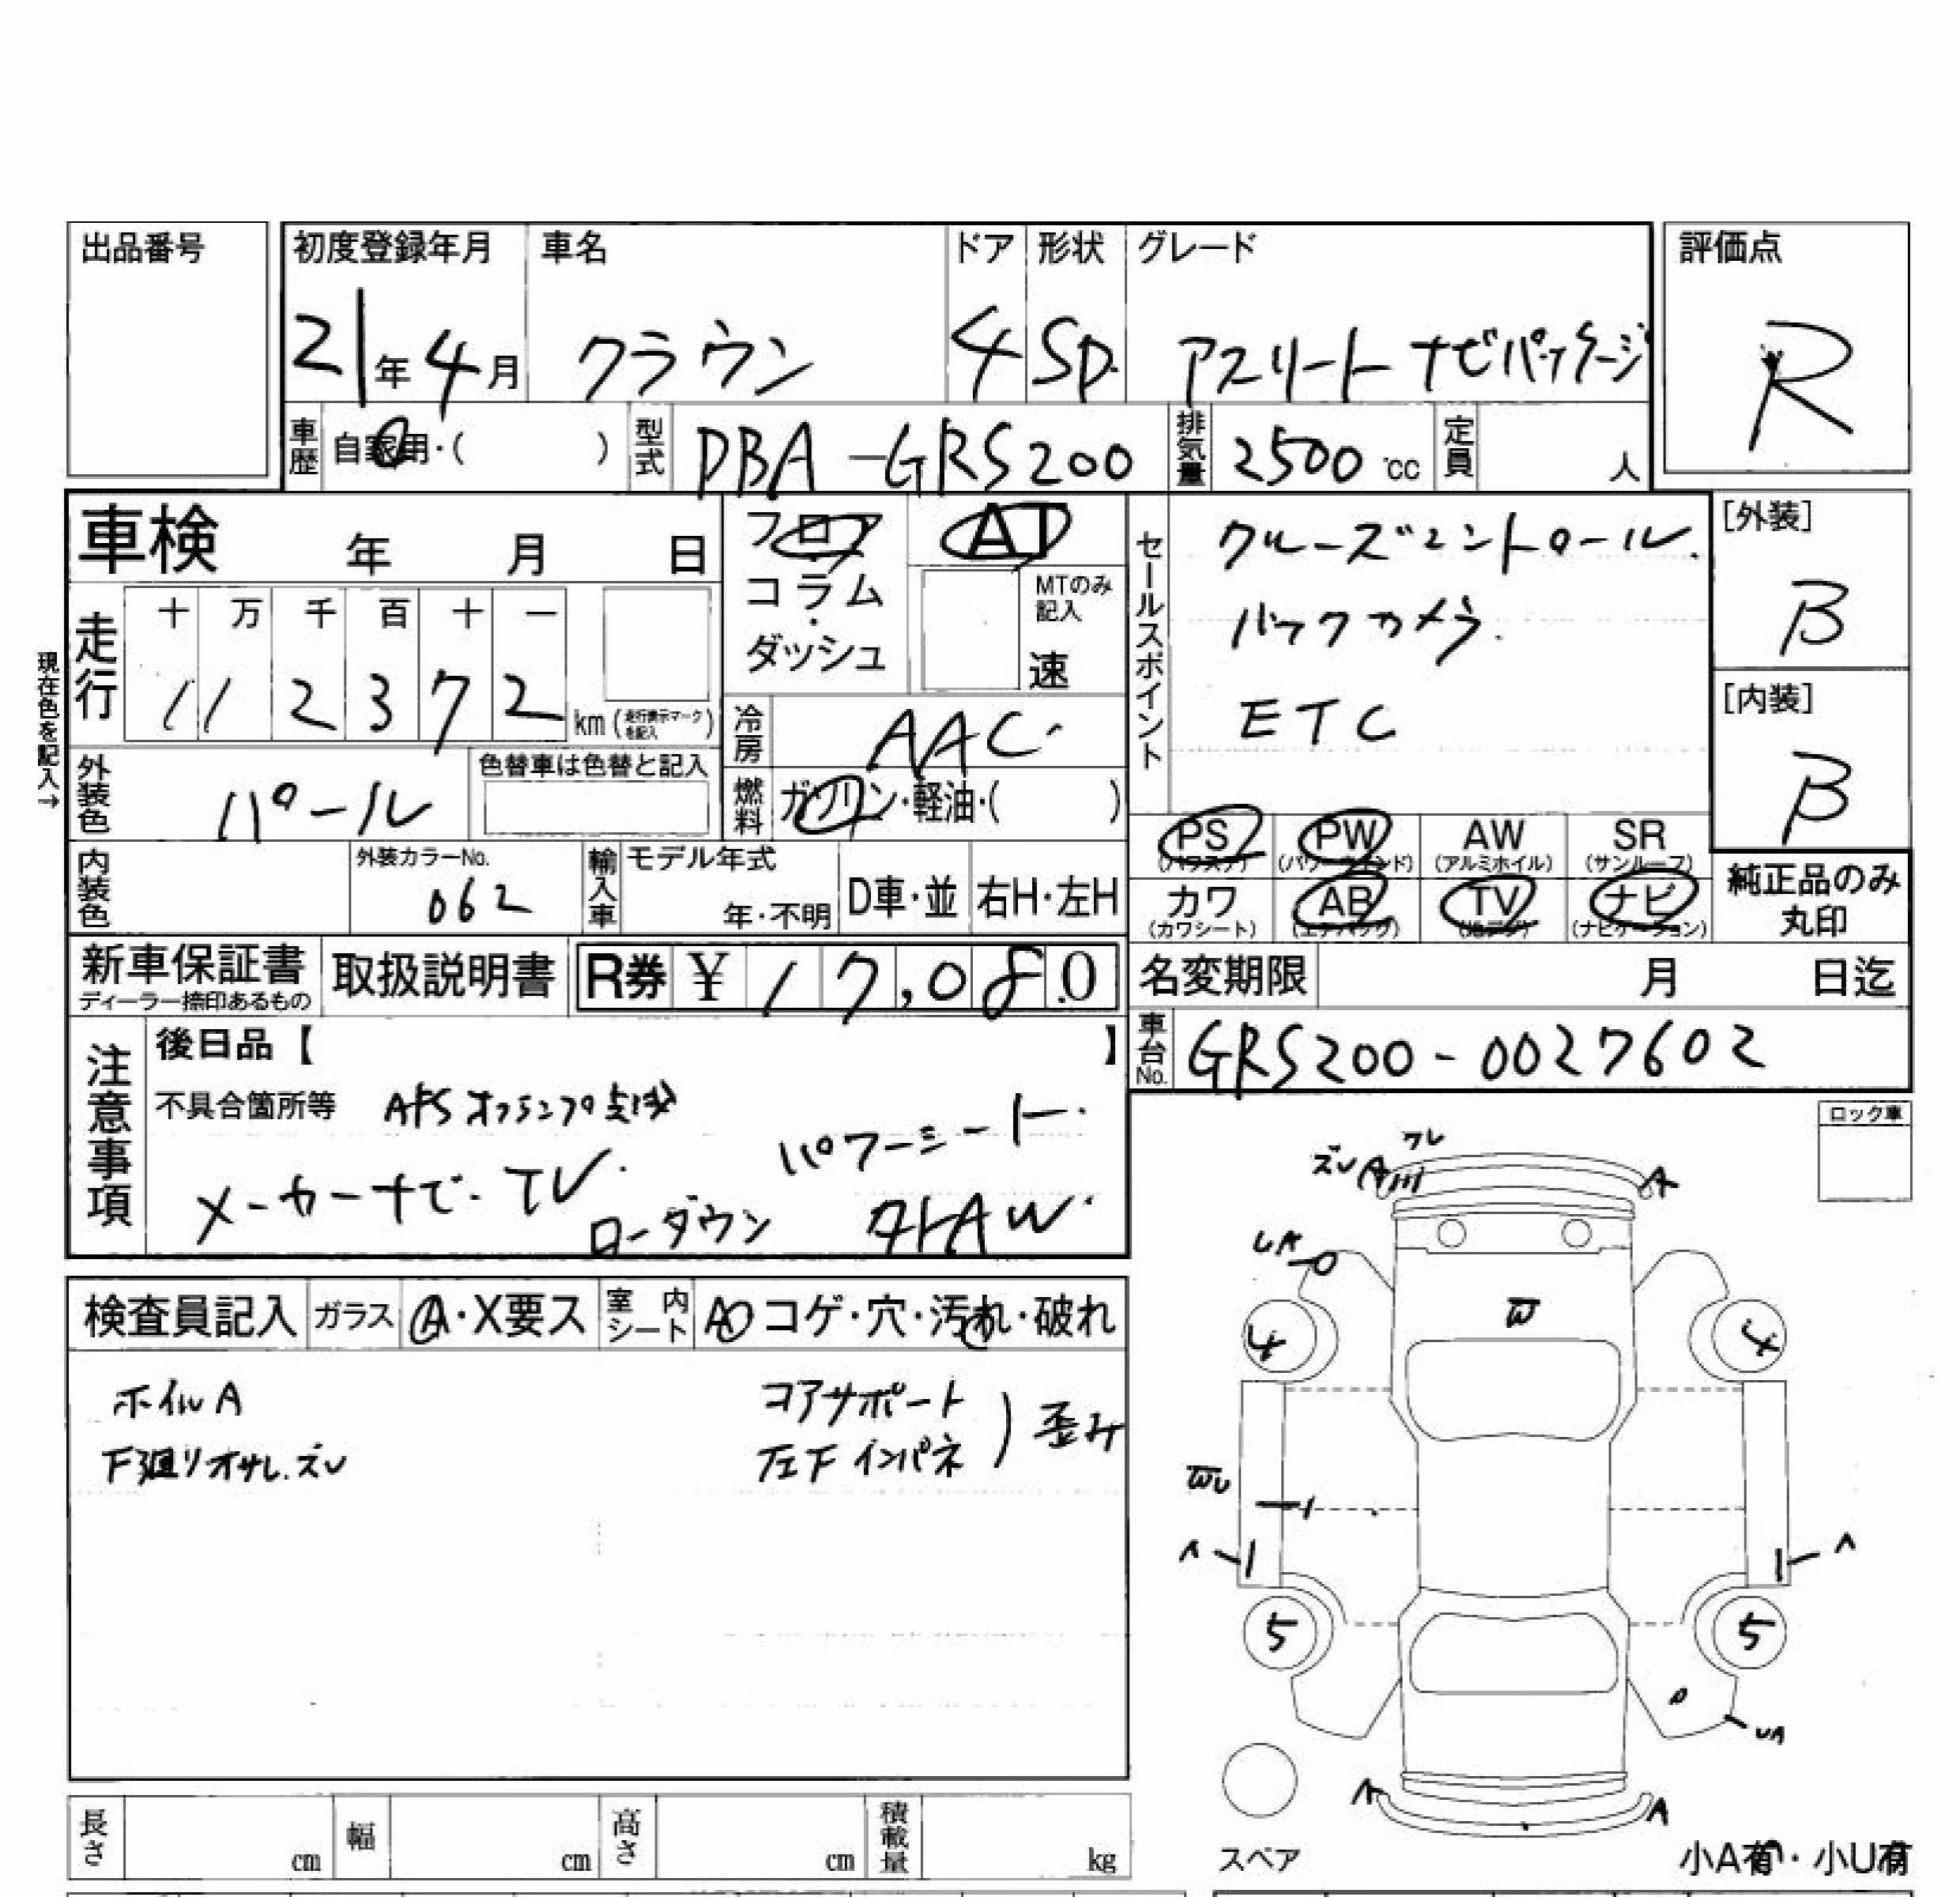 出品番号
初度登録年月 車名 ドア 形状 グレード 評価点
21年4月 クラウン 4 SD アスリート ナビパッケージ R
車歴 自家用・( ) 型式 DBA-GRS200 排気量 2500 cc 定員 人
車検 年 月 日
フロア
コラム
ダッシュ
AT
MTのみ
記入
速
セールスポイント
クルーズコントロール.
バックカメラ.
ETC
[外装]
B
[内装]
B
現在色を記入→
走行 十 万 千 百 十 一
112372 km(走行表示マークを記入)
冷房 AAC
外装色 パール 色替車は色替と記入
燃料 ガソリン・軽油・( )
PS PW AW SR
(パワステ) (パワーウィンド) (アルミホイル) (サンルーフ)
カワ AB TV ナビ
(カワシート) (エアバッグ) (ナビゲーション)
純正品のみ
丸印
内装色 外装カラーNo. 062 輸入車 モデル年式 年・不明 D車・並 右H・左H
新車保証書 取扱説明書 R券 ¥ 17,080
ディーラー捺印あるもの
名変期限 月 日迄
車台No. GRS200-0027602
注意事項
後日品【 】
不具合箇所等 AFSオフランプ点滅
メーカーナビ-TV. パワーシート.
ローダウン 外AW.
ロック車
検査員記入 ガラス A・X要ス 室内シート A コゲ・穴・汚れ・破れ
ホイルA コアサポート
下廻りオサレ.ズレ 左下インパネ ) 歪み
ワレ
ズレ A A
UA
W
4 4
WU
A A
5 5
UA
A A
スペア 小A有・小U有
長さ cm 幅 cm 高さ cm 積載量 kg